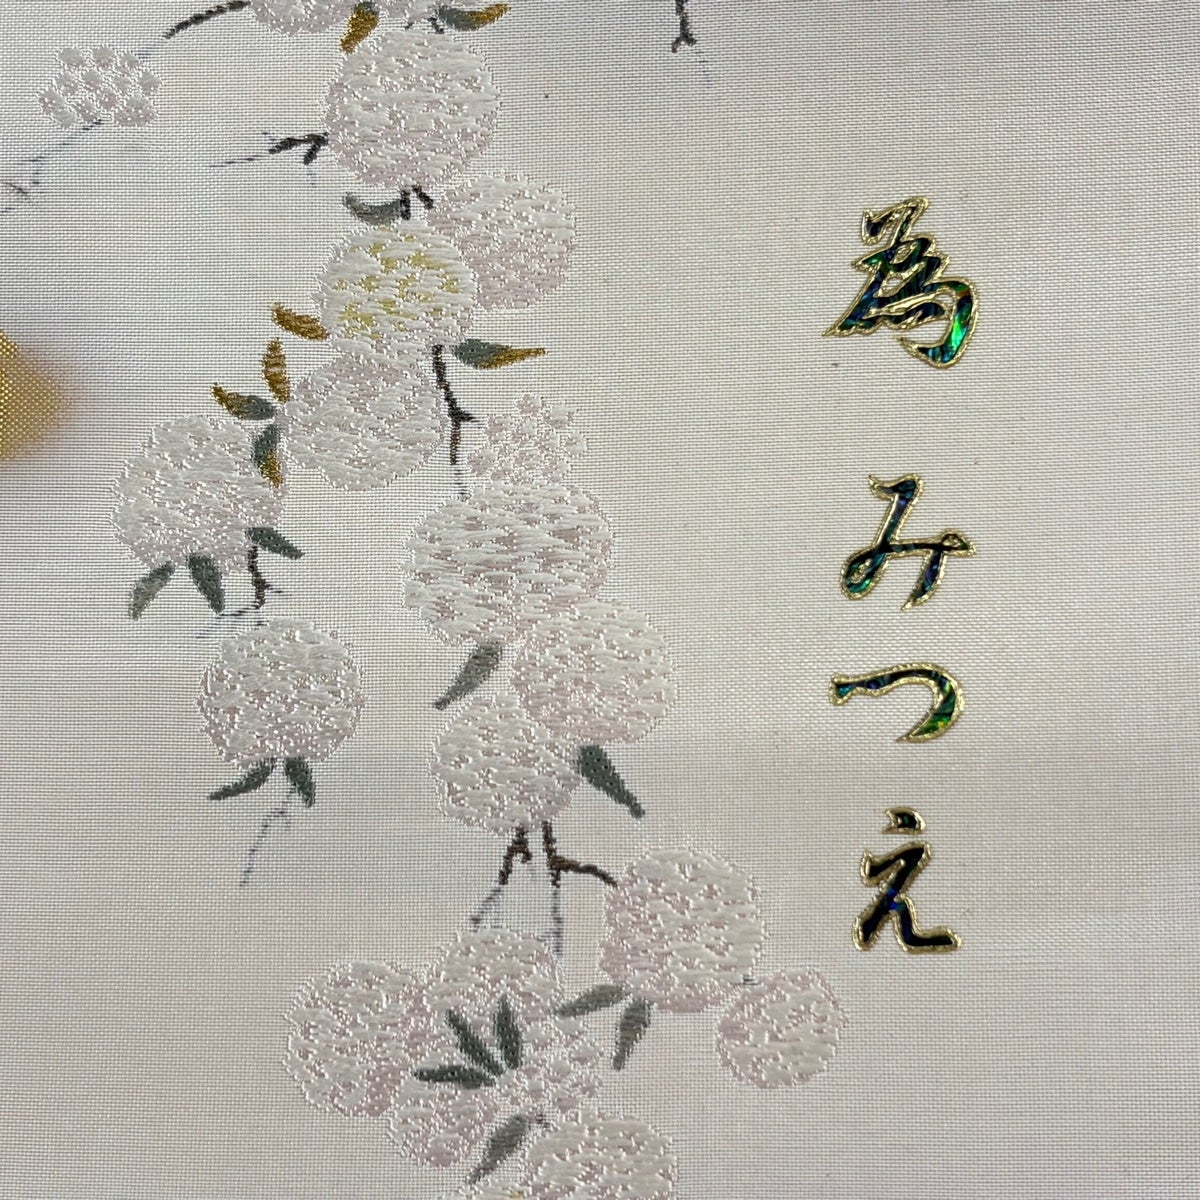 為みつえ